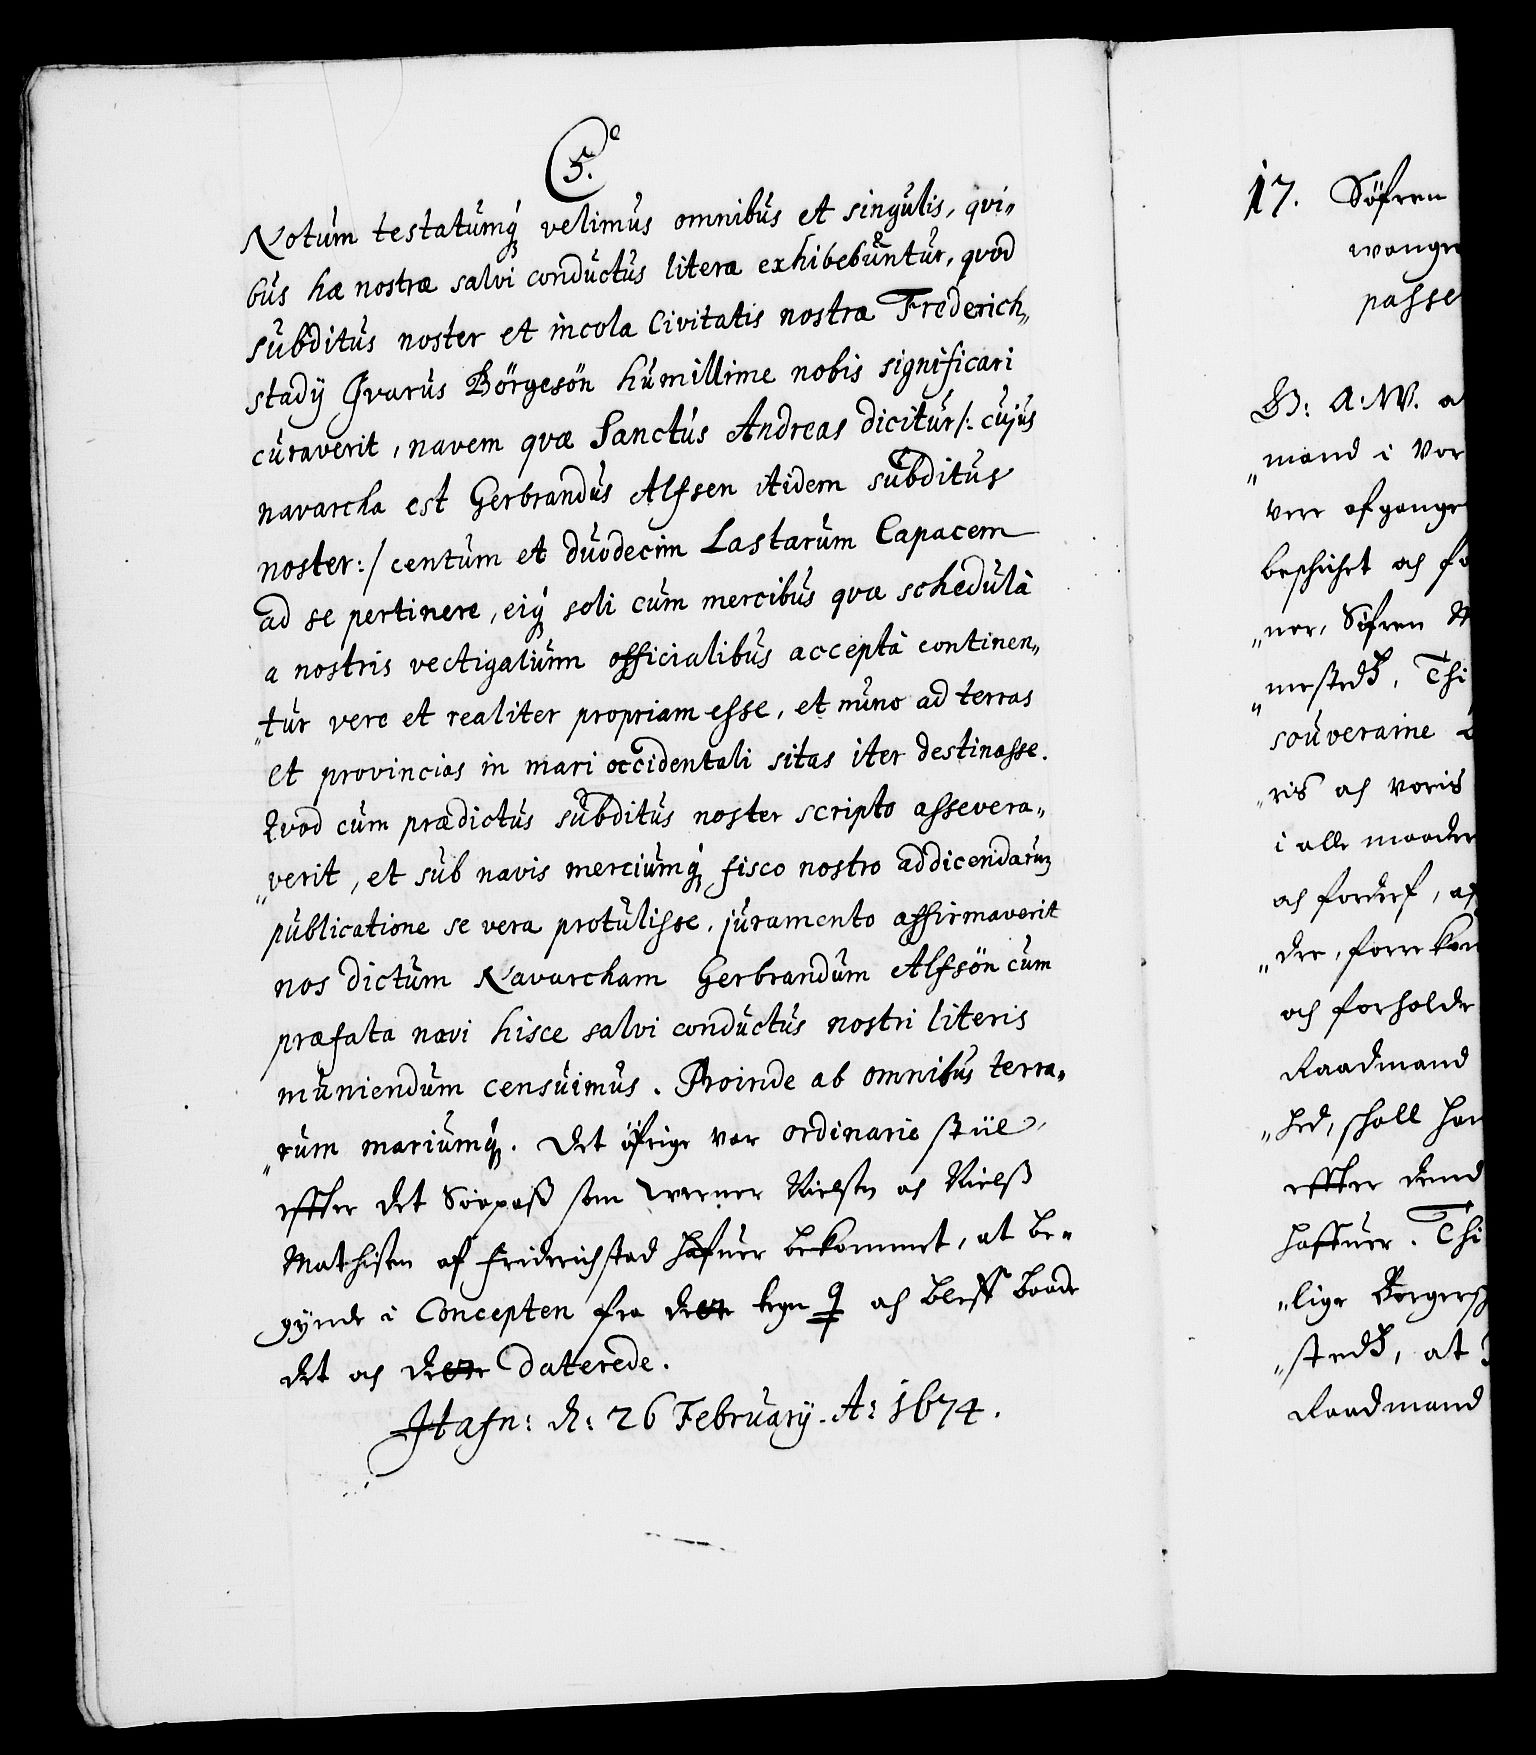 C5.
Notum testatumq́; velimus omnibus et singulis, qvi„
bus hæ nostræ salvi conductus literæ exhibebuntur, qvod
subditus noster et incola Civitatis nostræ Frederich„
stadij Ivarus Börgesön humillime nobis significari
curaverit, navem qvæ Sanctus Andreas dicitur /: cujus
navarcha est Gerbrandus Alfsen itidem subditus
noster :/ centum et duodecim Lastarum Capacem
ad se pertinere, eiq́; soli cum mercibus qvæ schedulâ
a nostris vectigalium officialibus acceptâ continen„
„tur vere et realiter propriam esse, et nunc ad terras
et provincias in mari occidentali sitas iter destinasse.
Qvod cum prædictus subditus noster scripto assevera„
„verit, et sub navis merciumq́; fisco nostro addicendarum
publicatione se vera protulisse, juramento affirmaverit
nos dictum Navarcham Gerbrandum Alfsön cum
præfata navi hisce salvi conductus nostri literis
muniendum censuimus. Proinde ab omnibus terra„
„rum mariumq́;. Det öfrige var ordinarie stiil
effter det Söepass som Werner Nielsen og Nielss
Mathisen af Friderichstad hafuer bekommet, at be„
gynde i Concepten fra dette tegn og bleff baade
det och dette daterede.
Hafn: d: 26 February. A: 1674.
17. Söfren
passe
B: A: W. a
„mand i Vor
beschichet och fo
„ner, Söfren
souveraine
„ris och voris
i alle maader
och forderf,
och forholde
Raadmand
„hed, schall han
effter dend
haffuer. Thi
„lige Borgersch
„stedz, at
Raadmand